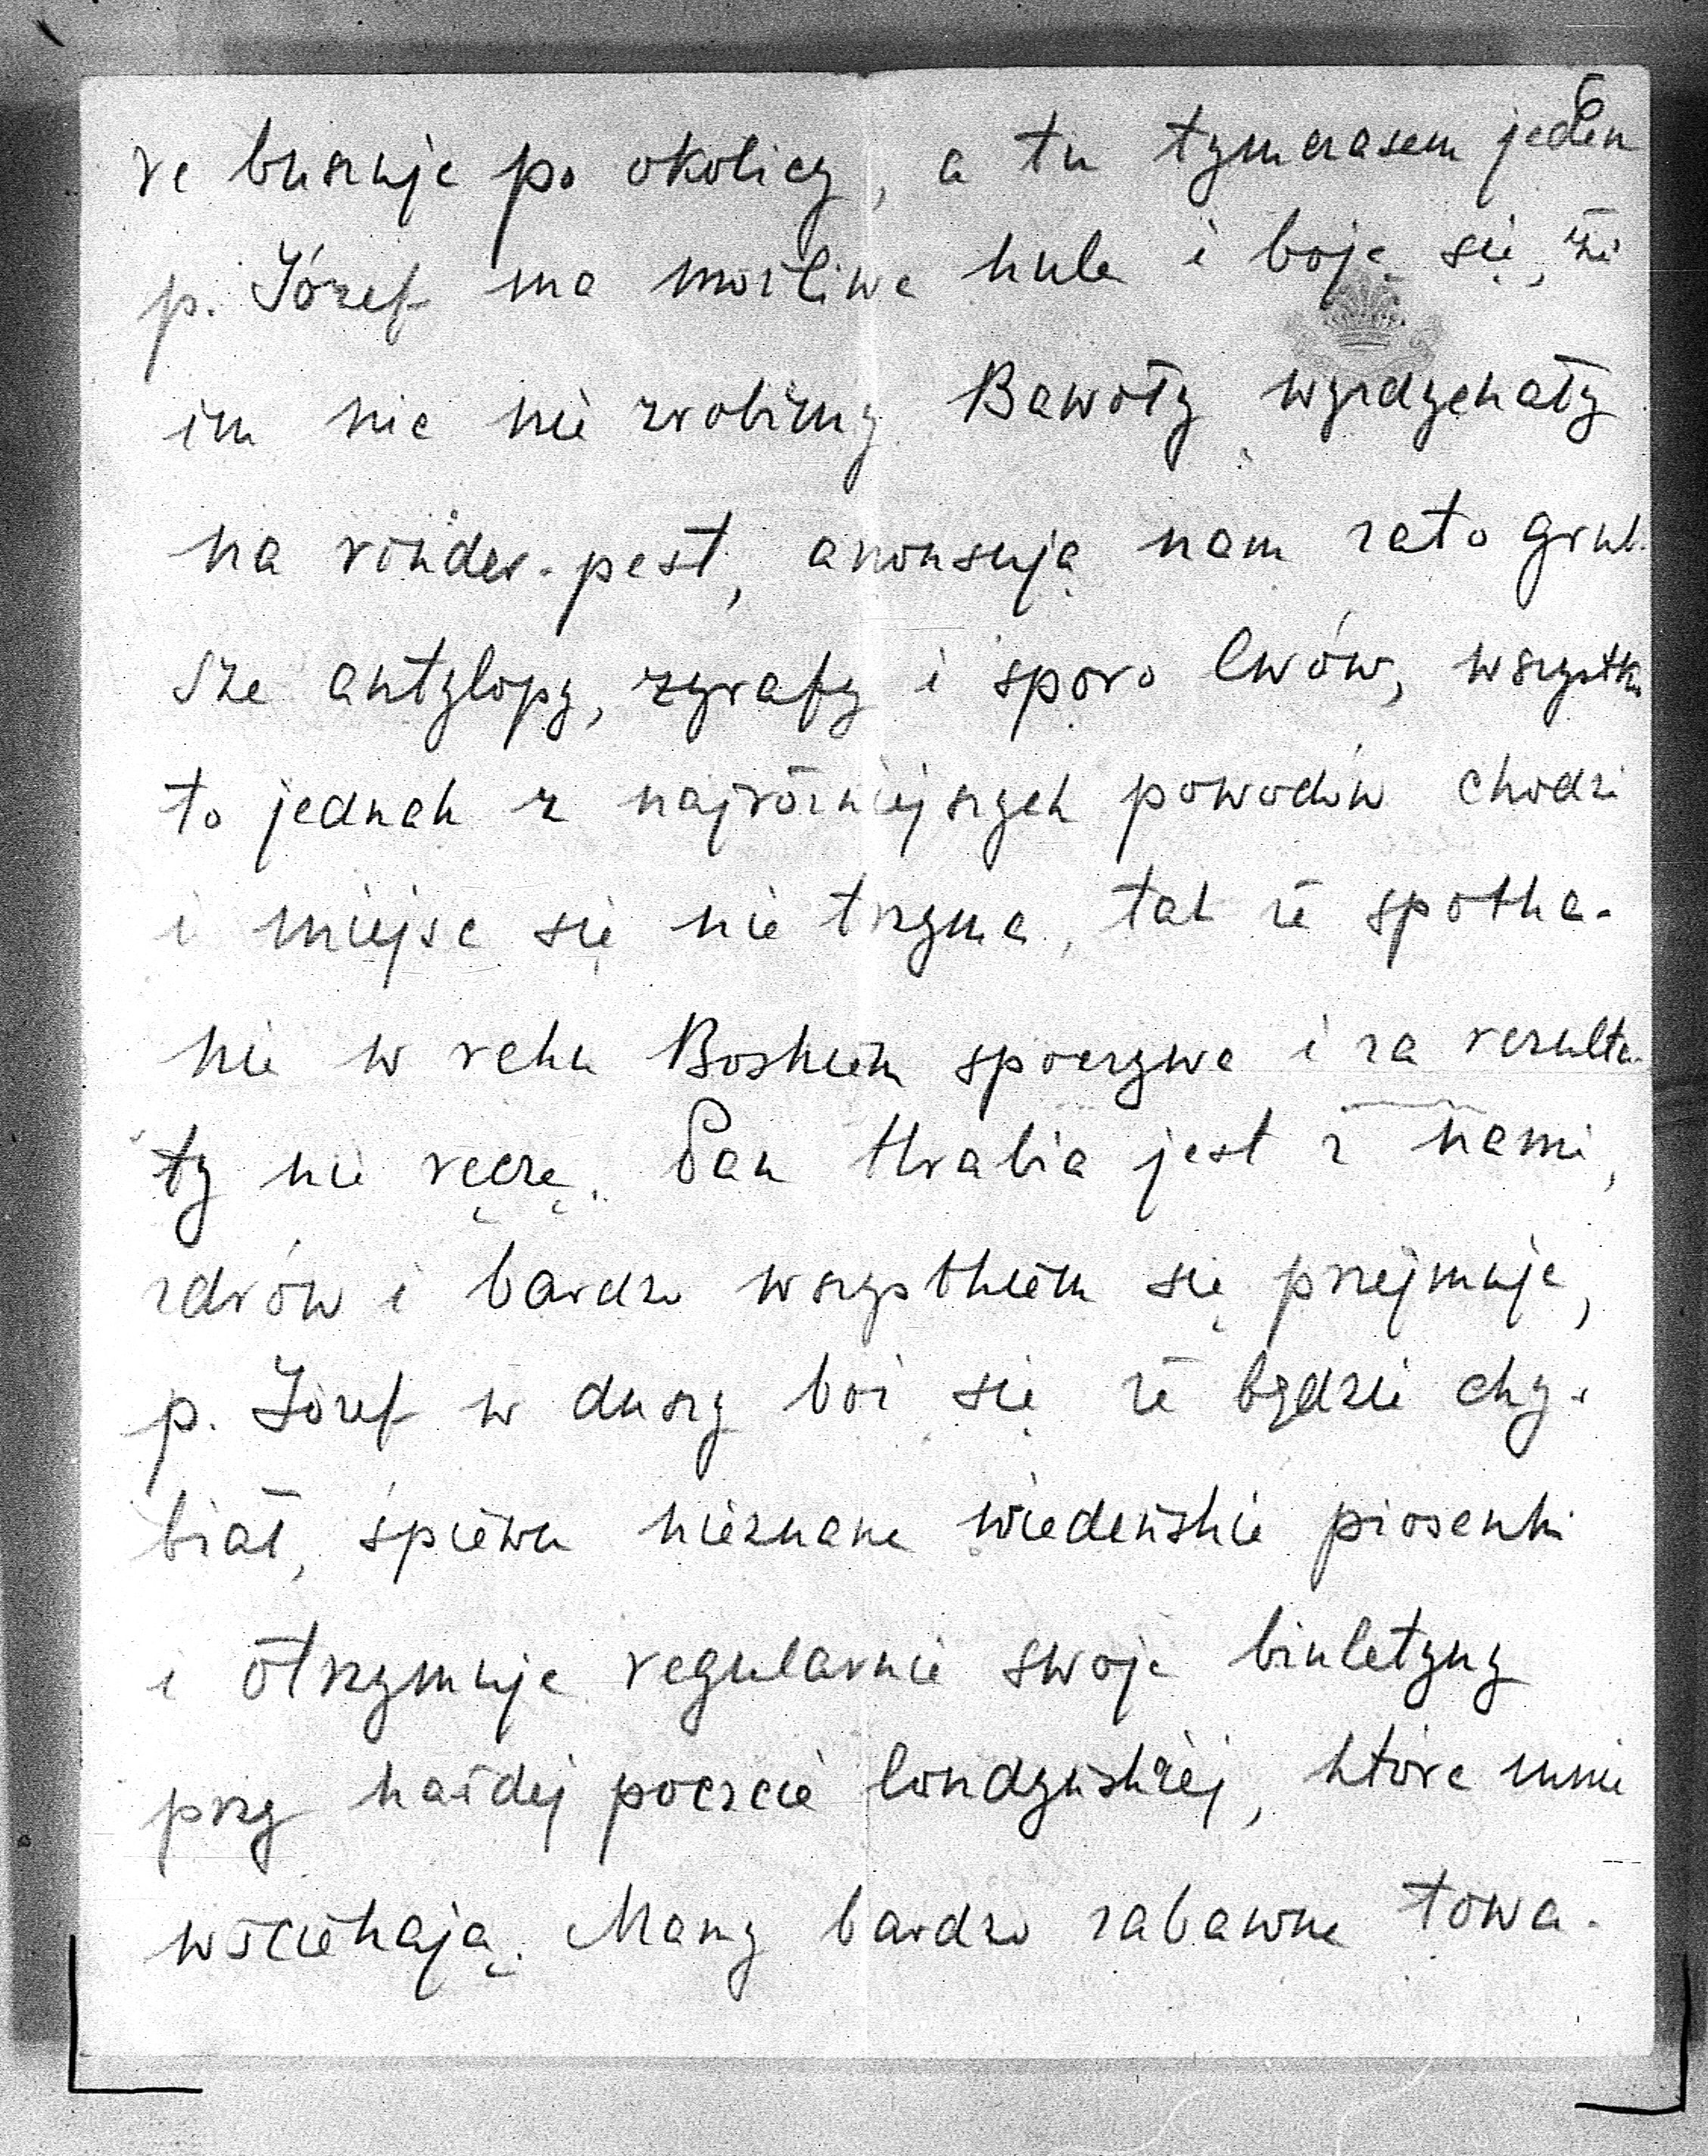 6
re buszuje po okolicy, a tu tymczasem jeden
p. Józef ma możliwe kule i boję się, że
im nic nie zrobimy. Bawoły wyzdychały
na rinder-pest, anonsują nam zato grub-
sze antylopy, żyrafy i sporo lwów, wszystko
to jednak z najróżniejszych powodów chodzi
i miejsc się nie trzyma, tak że spotka-
nie w ręku Boskiem spoczywa i za rezulta-
ty nie ręczę. Pan Hrabia jest z nami,
zdrów i bardzo wszystkiem się przejmuje,
p. Józef w duszy boi się że będzie chy-
biał, śpiewa nieznane wiedeńskie piosenki
i otrzymuje regularnie swoje biuletyny
przy każdej poczcie londyńskiej, które mnie
wściekają. Mamy bardzo zabawne towa-